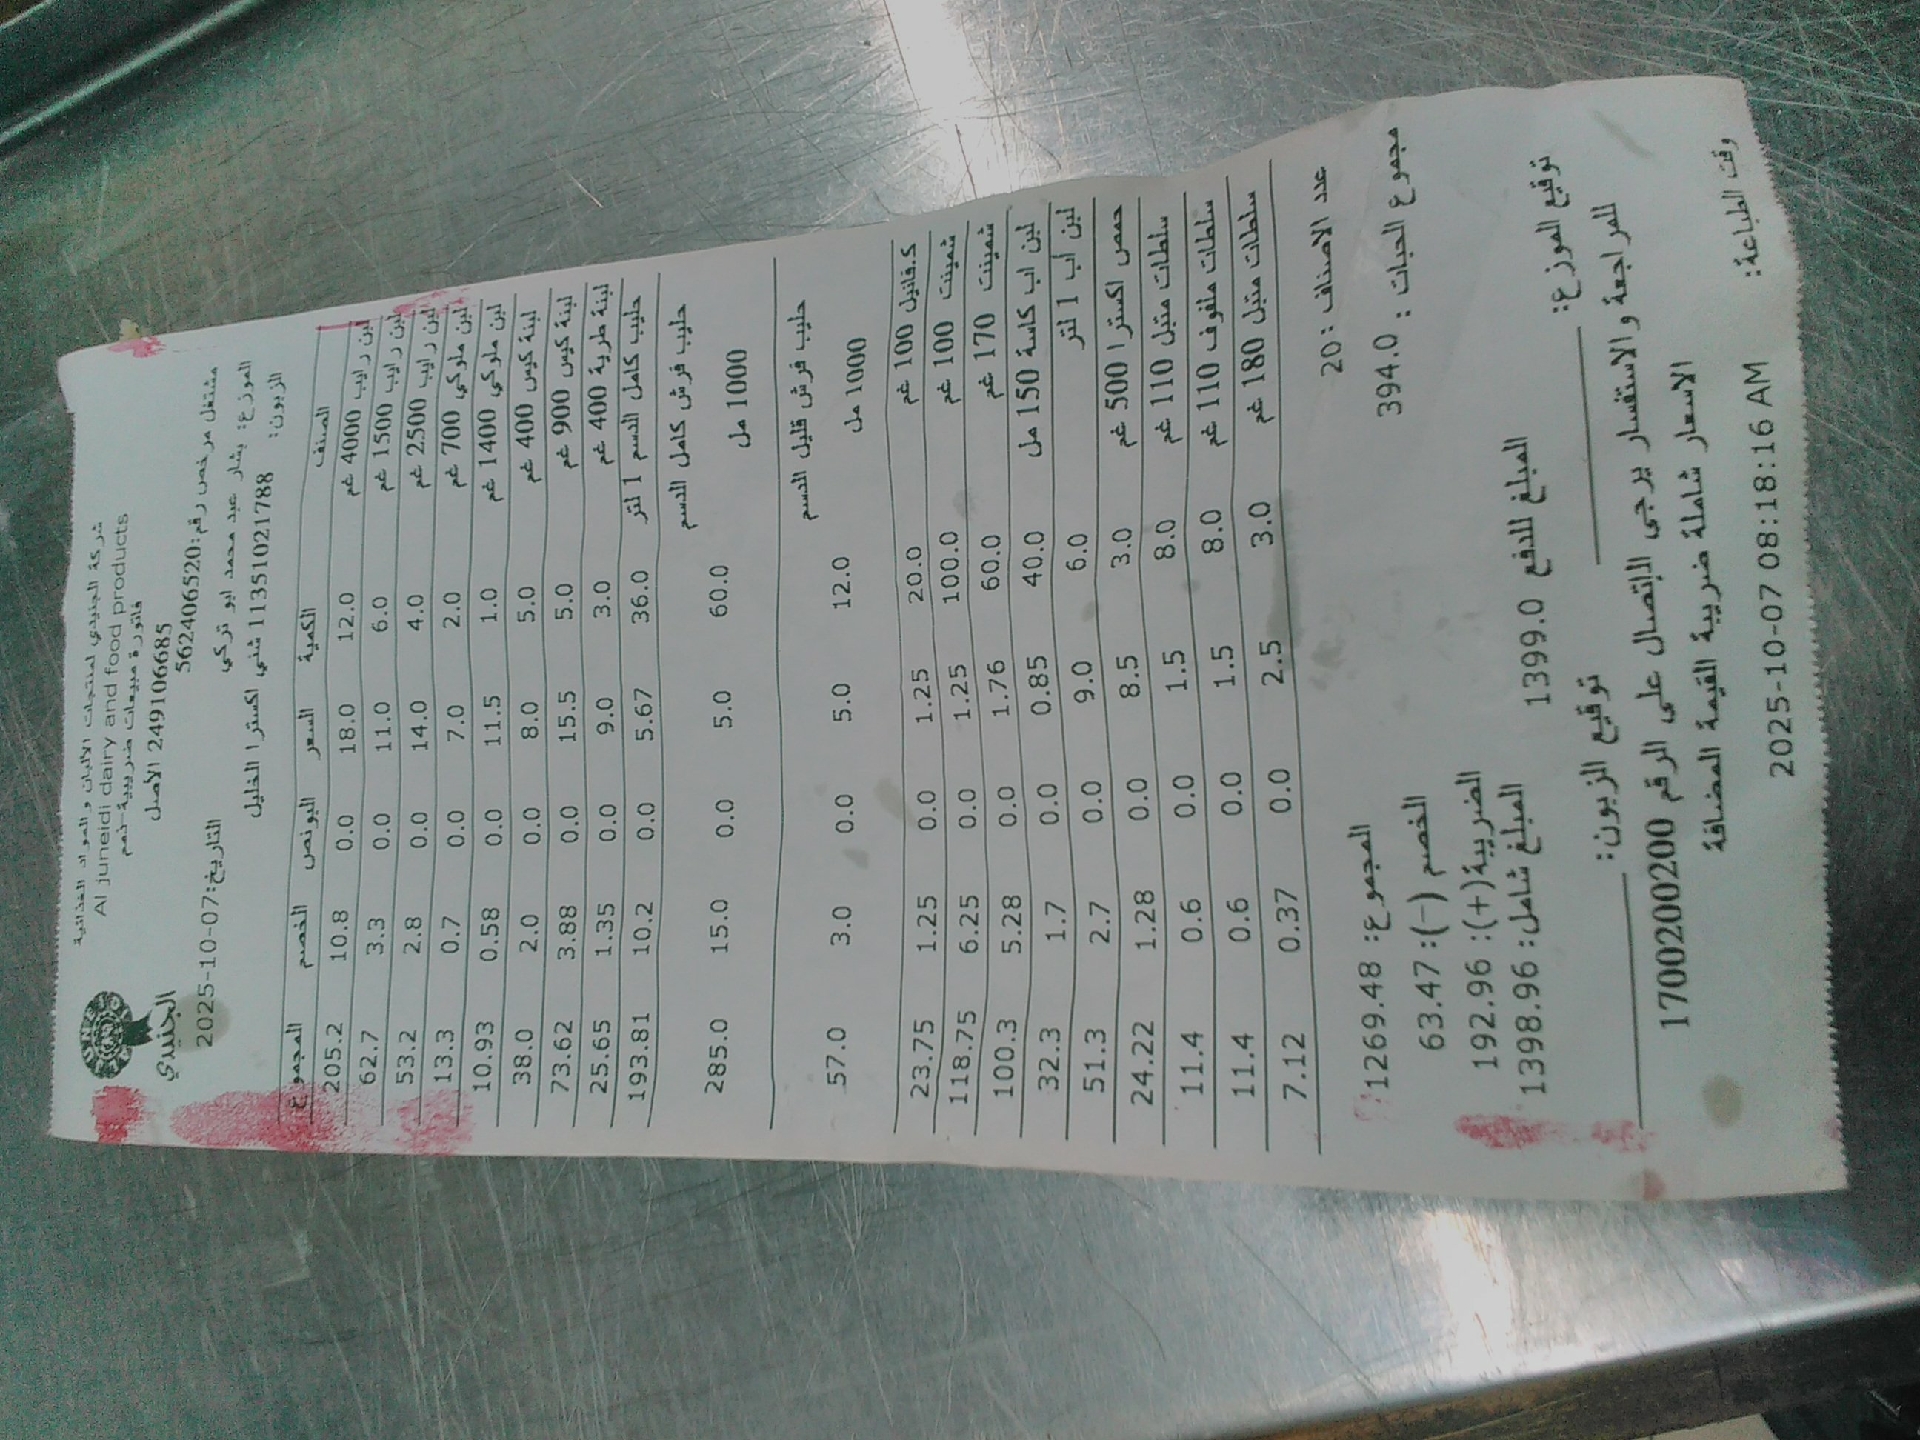 شركة الجنيدي لمنتجات الالبان والمواد الغذائية
Al juneidi dairy and food products
الجنيدي
فاتورة مبيعات ضريبية-ذمم
249106685 الأصل
مشتغل مرخص رقم:562406520
التاريخ:2025-10-07
الموزع: بشار عبد محمد ابو تركي
الزبون: 11351021788 شني اكسترا الخليل
الصنف الكمية السعر البونص الخصم المجموع
لبن رايب 4000 غم 12.0 18.0 0.0 10.8 205.2
لبن رايب 1500 غم 6.0 11.0 0.0 3.3 62.7
لبن رايب 2500 غم 4.0 14.0 0.0 2.8 53.2
لبن ملوكي 700 غم 2.0 7.0 0.0 0.7 13.3
لبن ملوكي 1400 غم 1.0 11.5 0.0 0.58 10.93
لبنة كيس 400 غم 5.0 8.0 0.0 2.0 38.0
لبنة كيس 900 غم 5.0 15.5 0.0 3.88 73.62
لبنة طرية 400 غم 3.0 9.0 0.0 1.35 25.65
حليب كامل الدسم 1 لتر 36.0 5.67 0.0 10.2 193.81
حليب فرش كامل الدسم
1000 مل 60.0 5.0 0.0 15.0 285.0
حليب فرش قليل الدسم
1000 مل 12.0 5.0 0.0 3.0 57.0
ك.فانيل 100 غم 20.0 1.25 0.0 1.25 23.75
شمينت 100 غم 100.0 1.25 0.0 6.25 118.75
شمينت 170 غم 60.0 1.76 0.0 5.28 100.3
لبن اب كاسة 150 مل 40.0 0.85 0.0 1.7 32.3
لبن اب 1 لتر 6.0 9.0 0.0 2.7 51.3
حمص اكسترا 500 غم 3.0 8.5 0.0 1.28 24.22
سلطات متبل 110 غم 8.0 1.5 0.0 0.6 11.4
سلطات ملفوف 110 غم 8.0 1.5 0.0 0.6 11.4
سلطات متبل 180 غم 3.0 2.5 0.0 0.37 7.12
عدد الاصناف : 20
مجموع الحبات : 394.0
المجموع: 1269.48
الخصم (-): 63.47
الضريبة(+): 192.96
المبلغ شامل: 1398.96
المبلغ للدفع 1399.0
توقيع الموزع:
توقيع الزبون:
للمراجعة والاستفسار يرجى الاتصال على الرقم 1700200200
الاسعار شاملة ضريبة القيمة المضافة
وقت الطباعة: 2025-10-07 08:18:16 AM